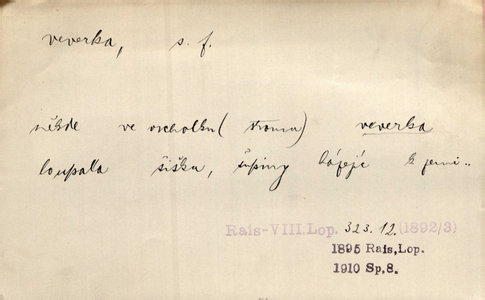 veverka, s. f.
někde ve vrcholku (stromu) veverka
loupala šišku, šupiny házejíc k zemi..
Rais-VIII.Lop. 323.12. (1892/3)
1895 Rais,Lop.
1910 Sp,8.